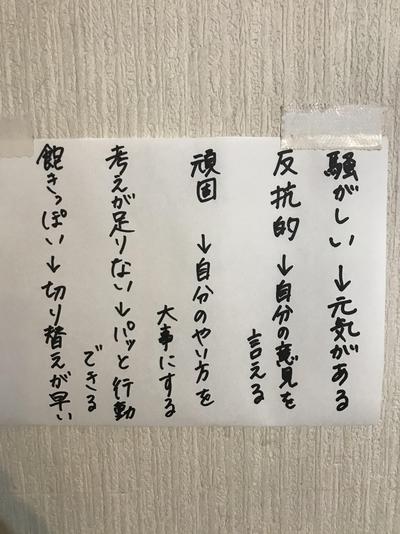 騒がしい → 元気がある
反抗的 → 自分の意見を
言える
頑固 → 自分のやい方を
大事にする
考えが足りない → パッと行動
できる
飽きっぽい → 切り替えが早い